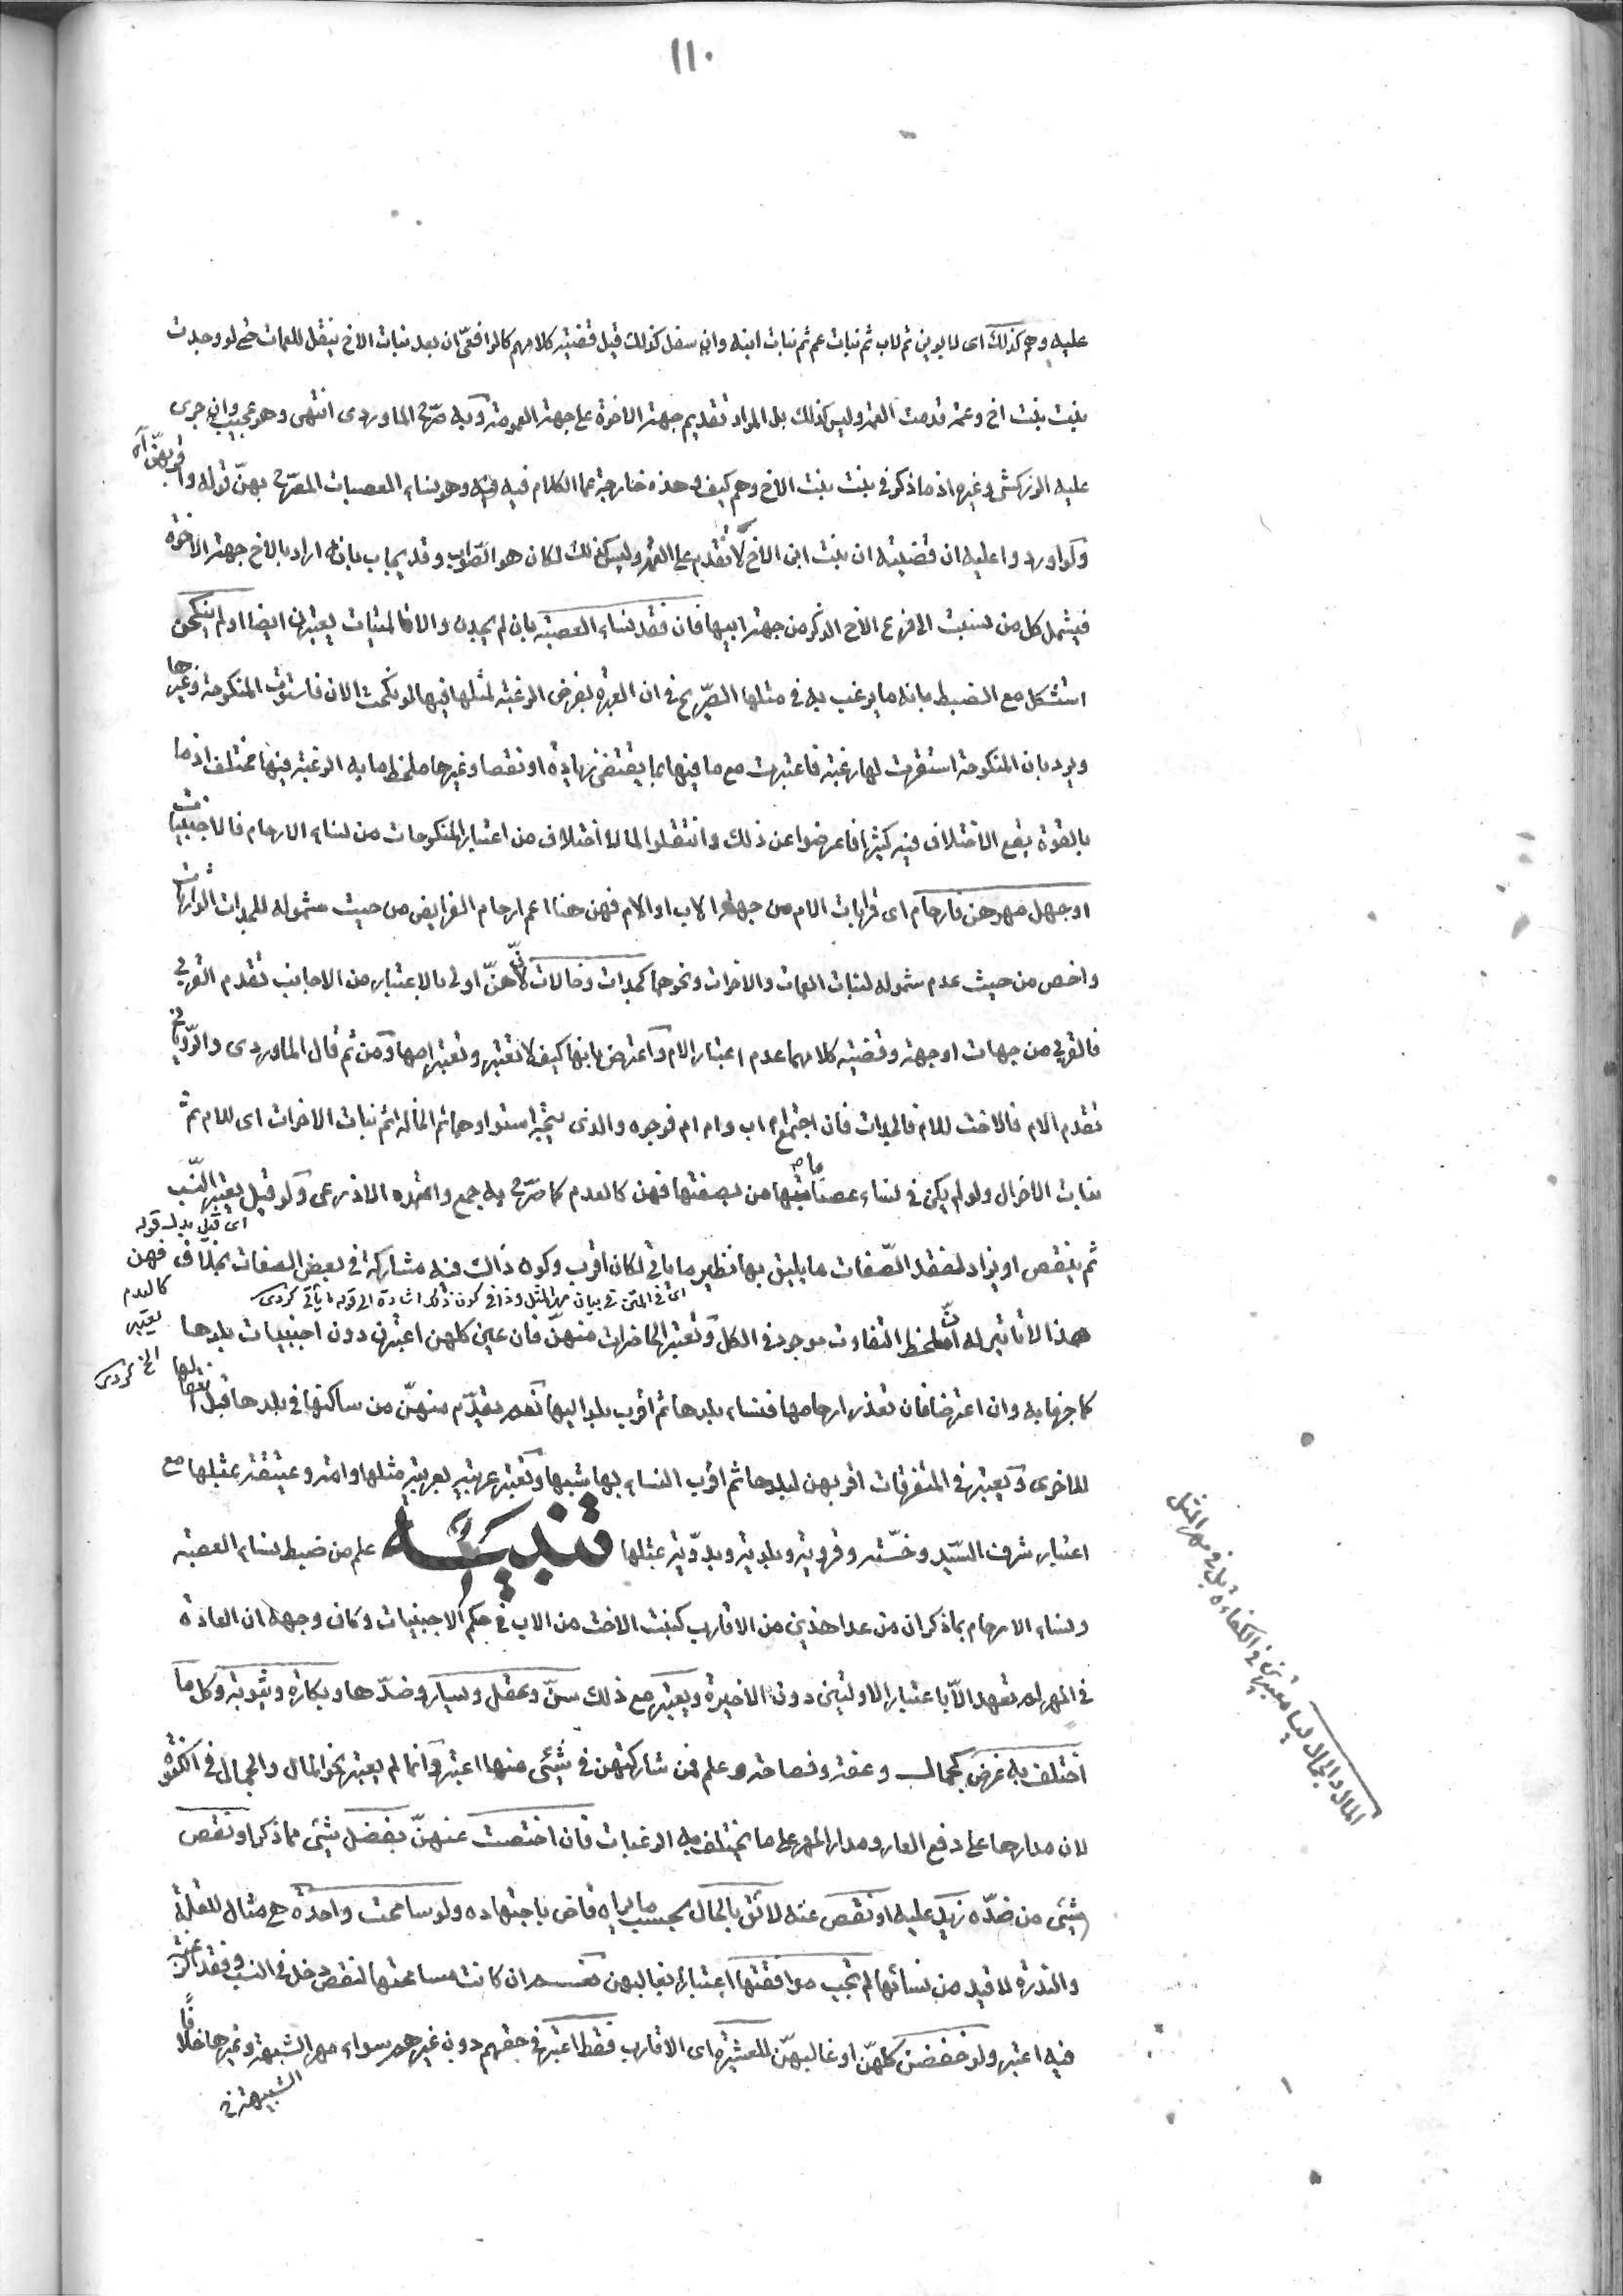 ١١٠
عليه وهم كذلك اى لابوين ثم لاب ثم بنات عم ثم بنات ابنه وان سفل كذلك قيل قضيته كلامهم كالرافعى ان بعد بنات الاخ ينتقل للعمات حتى لو وجدت
بنت بنت اخ وعمة قدمت العمة وليس كذلك بل المراد تقديم جهة الاخوة على جهة العمومة وبه صرّح الماوردى انتهى وهو عجيب وان جرى
عليه الزركشى وغيره اذ ما ذكر فى بنت بنت الاخ وهم كيف وهذه خارجة عما الكلام فيه فيه وهو نساء العصبات المصرّح بهنّ قوله واقربهنّ
ولو اوردوا عليه ان قضيته ان بنت ابن الاخ لا تقدم على العمة وليس كذلك لكان هو الصّواب وقد يجاب بانه اراد بالاخ جهة الاخوة
فيشمل كل من نسبت الى فرع الاخ الذكر من جهة ابيها فان فقد نساء العصبة بان لم يجدن والا فالميتات يعتبرن ايضا او لم ينكحن
استشكل مع الضبط بانه ما يرغب به فى مثلها الصّريح فى ان العبرة بفرض الرغبة لمثلها فيها لو نكحت الان فاستوت المنكوحة وغيرها
ويرد بان المنكوحة استقرت لها رغبة فاعتبرت مع ما فيها مما يقتضى زيادة او نقصا وغيرها ملحظ ما به الرغبة فيها مختلف اذ ما
بالقوة يقع الاختلاف فيه كثيرا فاعرضوا عن ذلك وانتقلوا لما لا اختلاف من اعتبار المنكوحات من نساء الارحام فالاجنبيات
او جهل مهرهن فارحام اى قرابات الام من جهة الاب او الام فهن هنا اعم ارحام الفرايض من حيث شموله للجدات الوارثات
واخص من حيث عدم شموله لبنات العمات والاخوات ونحوهما كجدات وخالات لانّهنّ اولى بالاعتبار من الاجانب تقدم القربى
فالقربى من جهات او جهة وقضيته كلامهما عدم اعتبار الام واعترض بانها كيف لا تعتبر وتعتبر امها ومن ثم قال الماوردى والرّويانى
تقدم الام فالاخت للام فالجدات فان اجتمع ام اب وام ام فوجوه والذى يتجه استواوهما ثم الخالة ثم بنات الاخوات اى للام ثم
بنات الاخوال ولو لم يكن فى نساء عصباتها من بصفتها فهن كالعدم كما صرّح به جمع واعتمده الاذرعى ولو قيل يعتبر النّسب
ثم ينقص او يزاد لفقد الصّفات ما يليق بها نظير ما ياتى لكان اقرب وكون ذلك فيه مشاركة فى بعض الصفات بخلاف
هذا لا تاثير له لانّ ملحظ التفاوت موجود فى الكل وتعتبر الحاضرات منهنّ فان غبن كلهن اعتبرن دون اجنبيات بلدها
كما جزما به وان اعترضا فان تعذر ارحامها فنساء بلدها ثم اقرب بلد اليها نعم يقدّم منهنّ من ساكنها فى بلدها قبل انتقالها
للاخرى ويعتبر فى المتفرقات اقربهن لبلدها ثم اقرب النساء بها شبها وتعتبر عربية بعربية مثلها وامة وعتيقة بمثلها مع
اعتبار شرف السّيد وخسّته وقروية وبلدية وبدوّية بمثلها تنبيه علم من ضبط نساء العصبة
ونساء الارحام بما ذكر ان من عدا هذين من الاقارب كبنت الاخت من الاب فى حكم الاجنبيات وكان وجهه ان العادة
فى المهر لم تعهد الّا باعتبار الاوليين دون الاخيرة ويعتبر مع ذلك سنّ وعقل ويسار وضدّها وبكارة وثيوبة وكل ما
اختلف به غرض كجمال وعفة وفصاحة وعلم فمن شاركتهن فى شئى منها اعتبر وانما لم يعتبر نحو المال والجمال فى الكفؤ
لان مدارها على دفع العار ومدار المهر على ما يختلف به الرغبات فان اختصت عنهنّ بفضل شئى مما ذكر او نقص
شئى من ضدّه زيد عليه او نقص عنه لائق بالحال بحسب ما يراه قاض باجتهاده ولو سامحت واحدة مثال للقلة
والندرة لا قيد من نسائها لم تجب موافقتها اعتبارا بغالبهن نعم ان كانت مسامحتها لنقص دخل فى النسب وفقد الرغبة
فيه اعتبر ولو خفضن كلهنّ او غالبهنّ للعشيرة اى الاقارب فقط اعتبر فى حقهم دون غيرهم سواء مهر الشبهة وغيرها خلافًا
الشبهة فى
اى قيل بدله قوله فهن كالعدم يعتبر الخ كردى
اى فى المتن فى بيان مهر المثل كردى
المال والجمال ليسا معتبرين فى الكفاءة بل فى مهر المثل